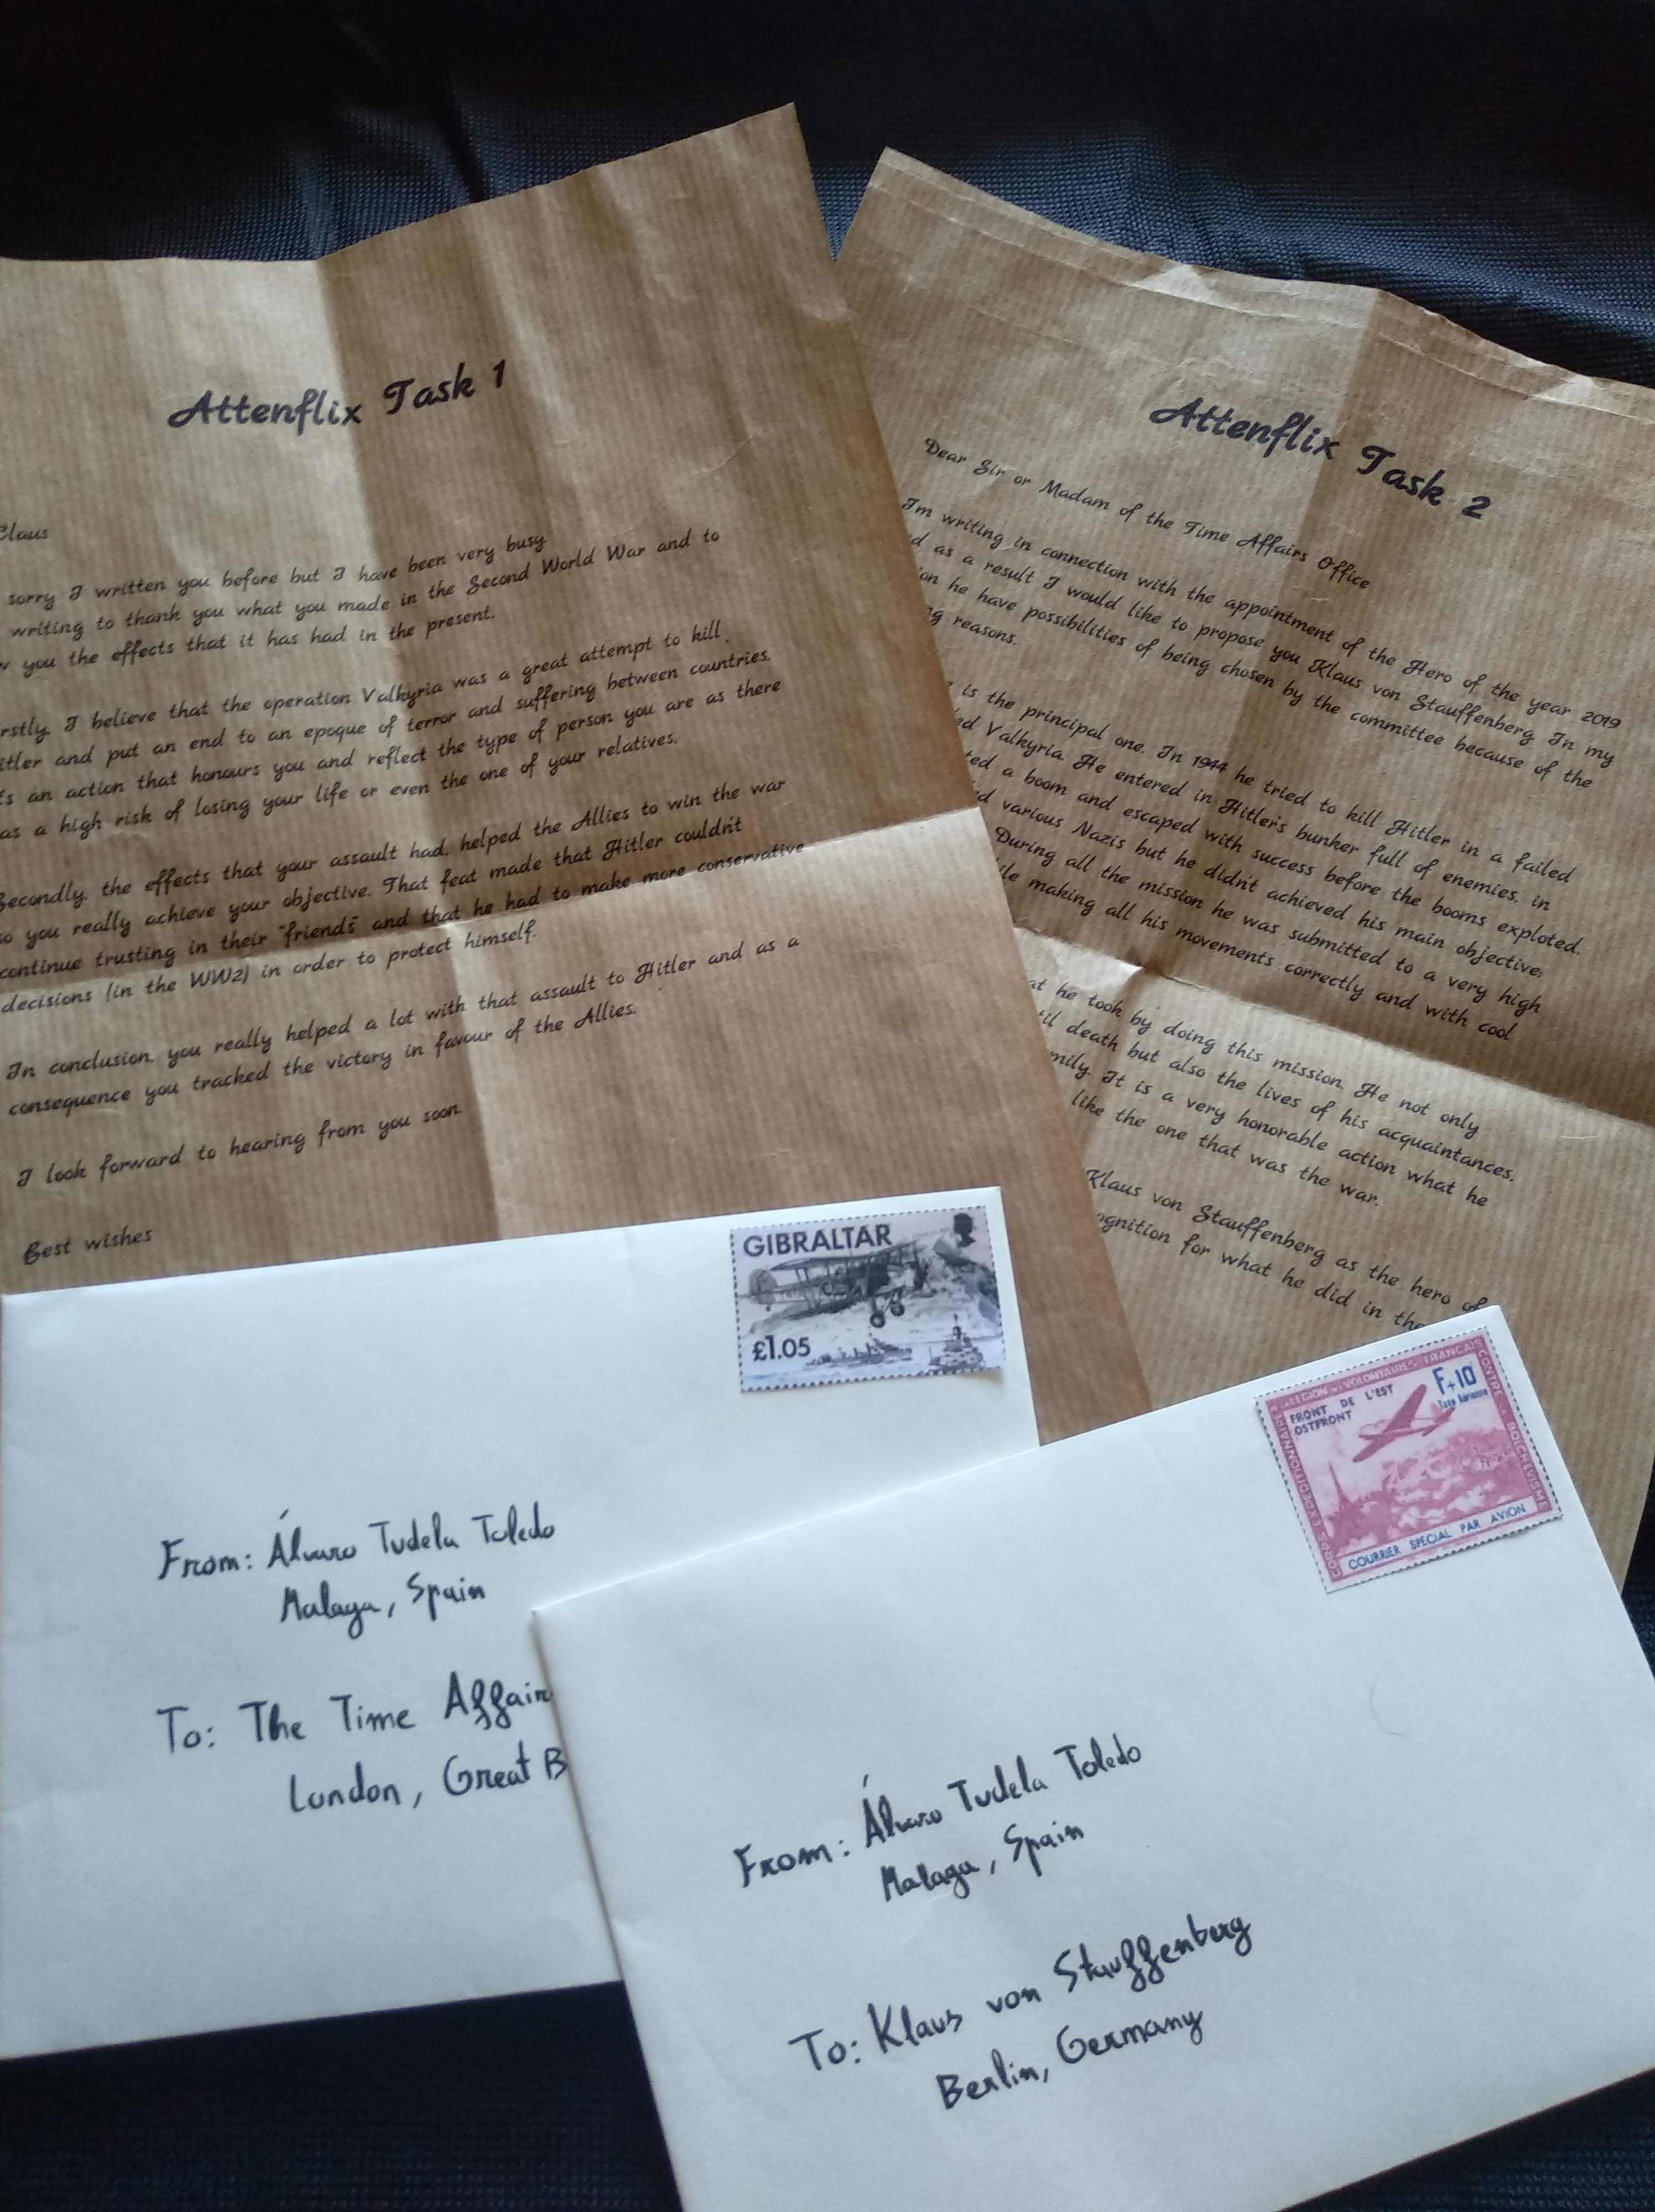 Attenflix Task 1
Claus
sorry I written you before but I have been very busy
writing to thank you what you made in the Second World War and to
you the effects that it has had in the present.
I believe that the operation Valkyria was a great attempt to kill
and put an end to an epoque of terror and suffering between countries.
an action that honours you and reflect the type of person you are as there
as a high risk of losing your life or even the one of your relatives.
Secondly, the effects that your assault had, helped the Allies to win the war
so you really achieve your objective. That feat made that Hitler couldn't
continue trusting in their "friends" and that he had to make more conservative
decisions (in the WW2) in order to protect himself.
In conclusion, you really helped a lot with that assault to Hitler and as a
consequence you tracked the victory in favour of the Allies.
I look forward to hearing from you soon.
Best wishes
Attenflix Task 2
Dear Sir or Madam of the Time Affairs Office
I'm writing in connection with the appointment of the Hero of the year 2019
as a result I would like to propose you Klaus von Stauffenberg. In my
he have possibilities of being chosen by the committee because of the
reasons.
is the principal one. In 1944 he tried to kill Hitler in a failed
Valkyria. He entered in Hitler's bunker full of enemies, in
a boom and escaped with success before the booms exploted.
various Nazis but he didn't achieved his main objective:
During all the mission he was submitted to a very high
making all his movements correctly and with cool
he took by doing this mission. He not only
death but also the lives of his acquaintances,
It is a very honorable action what he
like the one that was the war.
Klaus von Stauffenberg as the hero of
for what he did in the
GIBRALTAR
£1.05
From: Álvaro Tudela Toledo
Malaga, Spain
To: The Time Affair
London, Great B
LEGION DES VOLONTAIRES FRANCAIS CONTRE BOLCHEVISME
F+10
Taxe Aérienne
FRONT DE L'EST
OSTFRONT
COURRIER SPECIAL PAR AVION
From: Álvaro Tudela Toledo
Malaga, Spain
To: Klaus von Stauffenberg
Berlin, Germany